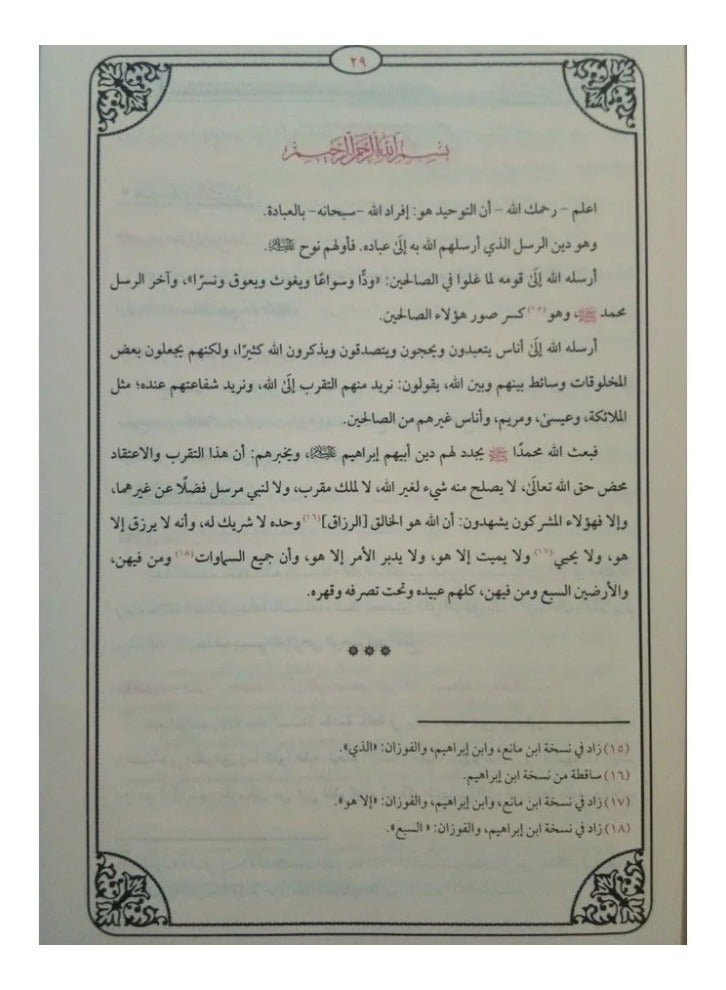 ٢٩
بسم الله الرحمن الرحيم
اعلم - رحمك الله - أن التوحيد هو: إفراد الله -سبحانه- بالعبادة.
وهو دين الرسل الذي أرسلهم الله به إلىٰ عباده. فأولهم نوح عليه السلام.
أرسله الله إلىٰ قومه لما غلوا في الصالحين: «ودًّا وسواعًا ويغوث ويعوق ونسرًا»، وآخر الرسل
محمد ﷺ، وهو(١٥) كسر صور هؤلاء الصالحين.
أرسله الله إلىٰ أناس يتعبدون ويحجون ويتصدقون ويذكرون الله كثيرًا، ولكنهم يجعلون بعض
المخلوقات وسائط بينهم وبين الله، يقولون: نريد منهم التقرب إلىٰ الله، ونريد شفاعتهم عنده؛ مثل
الملائكة، وعيسىٰ، ومريم، وأناس غيرهم من الصالحين.
فبعث الله محمدًا ﷺ يجدد لهم دين أبيهم إبراهيم عليه السلام، ويخبرهم: أن هذا التقرب والاعتقاد
محض حق الله تعالىٰ، لا يصلح منه شيء لغير الله، لا لملك مقرب، ولا لنبي مرسل فضلًا عن غيرهما،
وإلا فهؤلاء المشركون يشهدون: أن الله هو الخالق [الرزاق](١٦) وحده لا شريك له، وأنه لا يرزق إلا
هو، ولا يحيي(١٧) ولا يميت إلا هو، ولا يدبر الأمر إلا هو، وأن جميع السماوات(١٨) ومن فيهن،
والأرضين السبع ومن فيهن، كلهم عبيده وتحت تصرفه وقهره.
***
(١٥) زاد في نسخة ابن مانع، وابن إبراهيم، والفوزان: «الذي».
(١٦) ساقطة من نسخة ابن إبراهيم.
(١٧) زاد في نسخة ابن مانع، وابن إبراهيم، والفوزان: «إلا هو».
(١٨) زاد في نسخة ابن إبراهيم، والفوزان: « السبع».